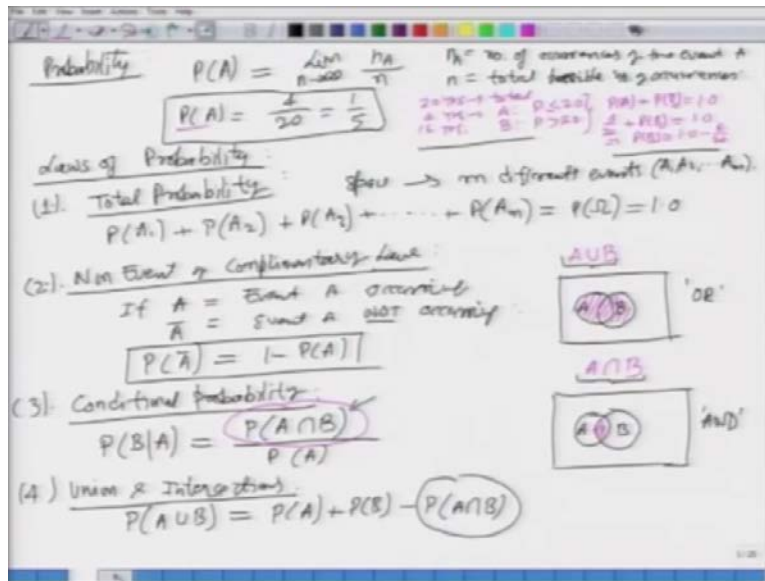 Probability P(A) = Lim n→∞ n_A / n
n_A = no. of occurrences of the event A
n = total possible no. of occurrences
P(A) = 4/20 = 1/5
20 yrs → total
4 yrs → A: P ≤ 20
B: P > 20
P(A) + P(B) = 1.0
+ P(B) = 1.0
P(B) = 1.0 -
Laws of Probability:
(1). Total Probability: space → m different events (A1, A2, ... Am).
P(A1) + P(A2) + P(A2) + ...... + P(Am) = P(Ω) = 1.0
(2). Non Event or Complimentary Law:
If A = Event A occurring
Ā = Event A NOT occurring
P(Ā) = 1 - P(A)
A∪B
A B 'OR'
(3). Conditional Probability:
P(B|A) = P(A∩B) / P(A)
A∩B
A B 'AND'
(4) Union & Intersections:
P(A∪B) = P(A) + P(B) - P(A∩B)